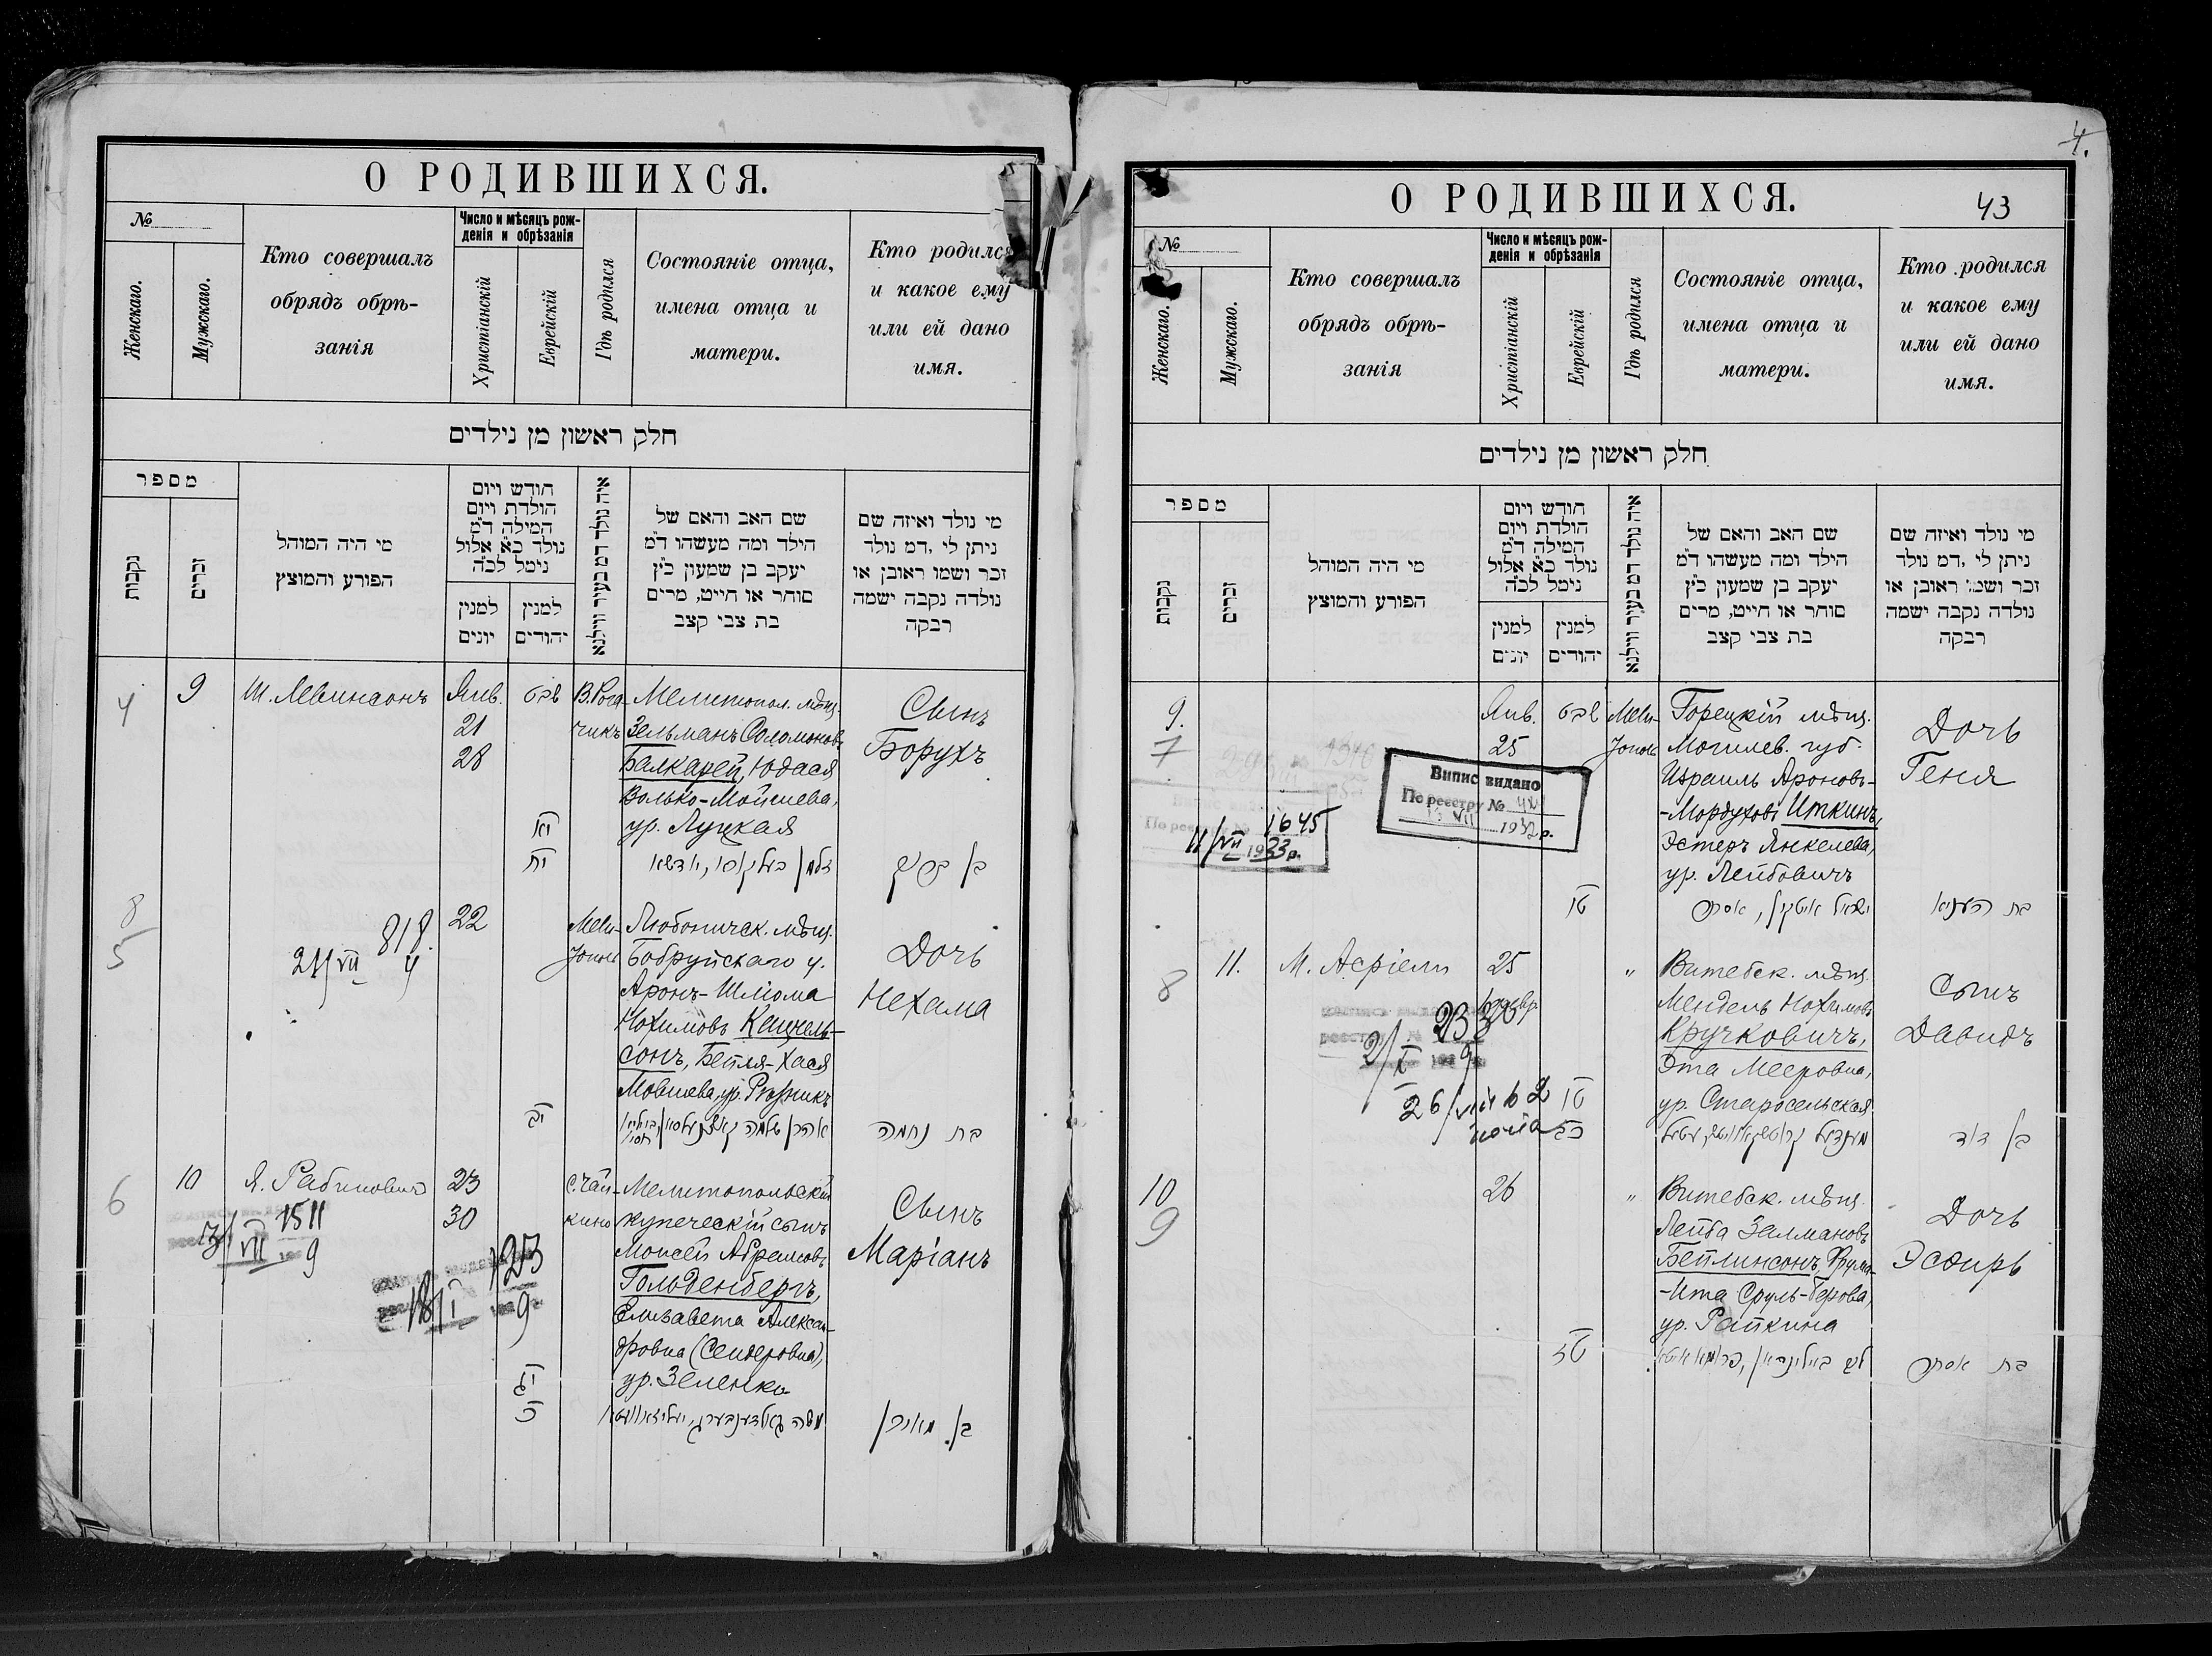 О РОДИВШИХСЯ.
№
Женскаго.
Мужскаго.
Кто совершалъ
обрядъ обрѣ-
занія
Число и мѣсяцъ рож-
денія и обрѣзанія
Христіанскій
Еврейскій
Гдѣ родился
Состояніе отца,
имена отца и
матери.
Кто родился
и какое ему
или ей дано
имя.
חלק ראשון מן נילדים
מספר
נקבות
זכרים
מי היה המוהל
הפורע והמוצץ
חודש ויום
הולדת ויום
המילה ד״מ
נולד כ״א אלול
נימל לכ״ה
למנין
יונים
למנין
יהודים
איה נולד דמ בעיר ווילנא
שם האב והאם של
הילד ומה מעשהו ד״מ
יעקב בן שמעון כ״ץ
סוחר או חייט, מרים
בת צבי קצב
מי נולד ואיזה שם
ניתן לי ,דמ נולד
זכר ושמו ראובן או
נולדה נקבה ישמה
רבקה
4
9
Ш. Левинсонъ
Янв.
21
28
שבט
В. Рога-
чикъ
Мелитопол. мѣщ.
Зельманъ Соломоновъ
Балкарей, Юдася
Волько-Мойсиева,
ур. Луцкая
Сынъ
Борухъ
יא
יח
8
5
818
21/VII 4
22
Мели-
тополь
Любоническ. мѣщ.
Бобруйскаго у.
Аронъ-Шліома
Нохимовъ Кацнель-
сонъ, Бейля-Хася
Мовшева, ур. Рѣзникъ
Дочь
Нехама
יב
בת נחמה
6
10
Я. Рабиновичъ
1511
3/VII 9
123
18/I 9
23
30
с. Чап-
кино
Мелитопольскій
купеческій сынъ
Моисей Абрамовъ
Гольденбергъ,
Елизавета Алексан-
дровна (Сендеровна),
ур. Зеленко
Сынъ
Маріанъ
יג
כ
משה גאלדענבערג, יעליזאוועטא
4.
О РОДИВШИХСЯ.
43
№
Женскаго.
Мужскаго.
Кто совершалъ
обрядъ обрѣ-
занія
Число и мѣсяцъ рож-
денія и обрѣзанія
Христіанскій
Еврейскій
Гдѣ родился
Состояніе отца,
имена отца и
матери.
Кто родился
и какое ему
или ей дано
имя.
חלק ראשון מן נילדים
מספר
נקבות
זכרים
מי היה המוהל
הפורע והמוצץ
חודש ויום
הולדת ויום
המילה ד״מ
נולד כ״א אלול
נימל לכ״ה
למנין
יונים
למנין
יהודים
איה נולד דמ בעיר ווילנא
שם האב והאם של
הילד ומה מעשהו ד״מ
יעקב בן שמעון כ״ץ
סוחר או חייט, מרים
בת צבי קצב
מי נולד ואיזה שם
ניתן לי ,דמ נולד
זכר ושמו ראובן או
נולדה נקבה ישמה
רבקה
9.
7
Янв.
25
שבט
Мели-
тополь
Горецкій мѣщ.
Могилев. губ.
Израиль Ароновъ-
-Мордуховъ Иткинъ,
Эстеръ Янкелева,
ур. Лейбовичъ
Дочь
Геня
Випис видано
По реестру №
VII 1932 р.
1645
11/VII 1933 р.
טו
8
11.
М. Асріели
25
"
Витебск. мѣщ.
Мендель Нохимовъ
Кручковичъ,
Эта Мееровна,
ур. Старосельская
Сынъ
Давидъ
2/X 9
26/VII
טו
כג
בן דוד
10
9
26
"
Витебск. мѣщ.
Лейба Залмановъ
Бейлинсонъ, Фрума-
-Ита Сруль-Берова,
ур. Рапкина
Дочь
Эсфирь
טז
בת אסתר